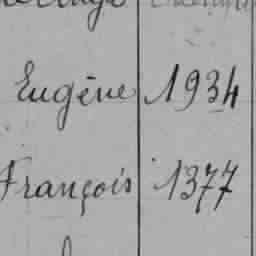 Eugène 1934
François 1377